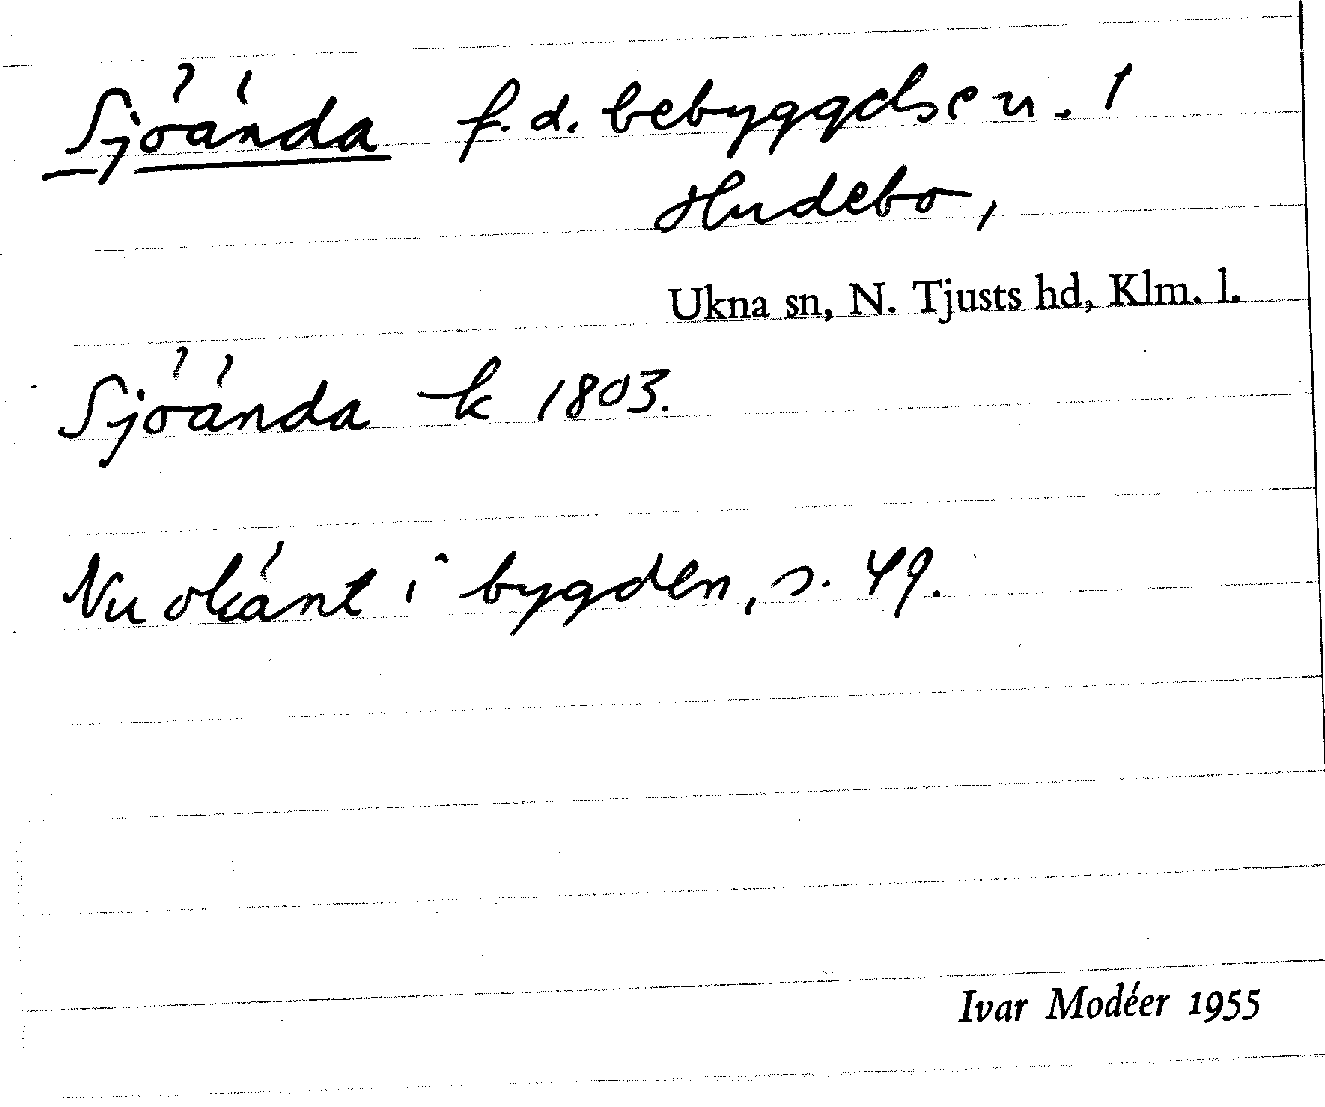 Sjöända f.d. bebyggelse u.
Hudebo,
Ukna sn, N. Tjusts hd, Klm. l.
Sjöända k 1803.
Nu okänt i bygden, s. 49.
Ivar Modéer 1955